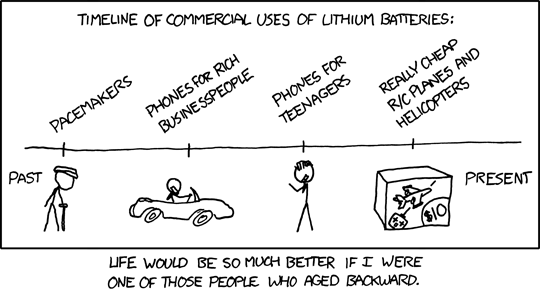 TIMELINE OF COMMERCIAL USES OF LITHIUM BATTERIES:
PACEMAKERS
PHONES FOR RICH
BUSINESSPEOPLE
PHONES FOR
TEENAGERS
REALLY CHEAP
R/C PLANES AND
HELICOPTERS
PAST
PRESENT
$10
LIFE WOULD BE SO MUCH BETTER IF I WERE
ONE OF THOSE PEOPLE WHO AGED BACKWARD.